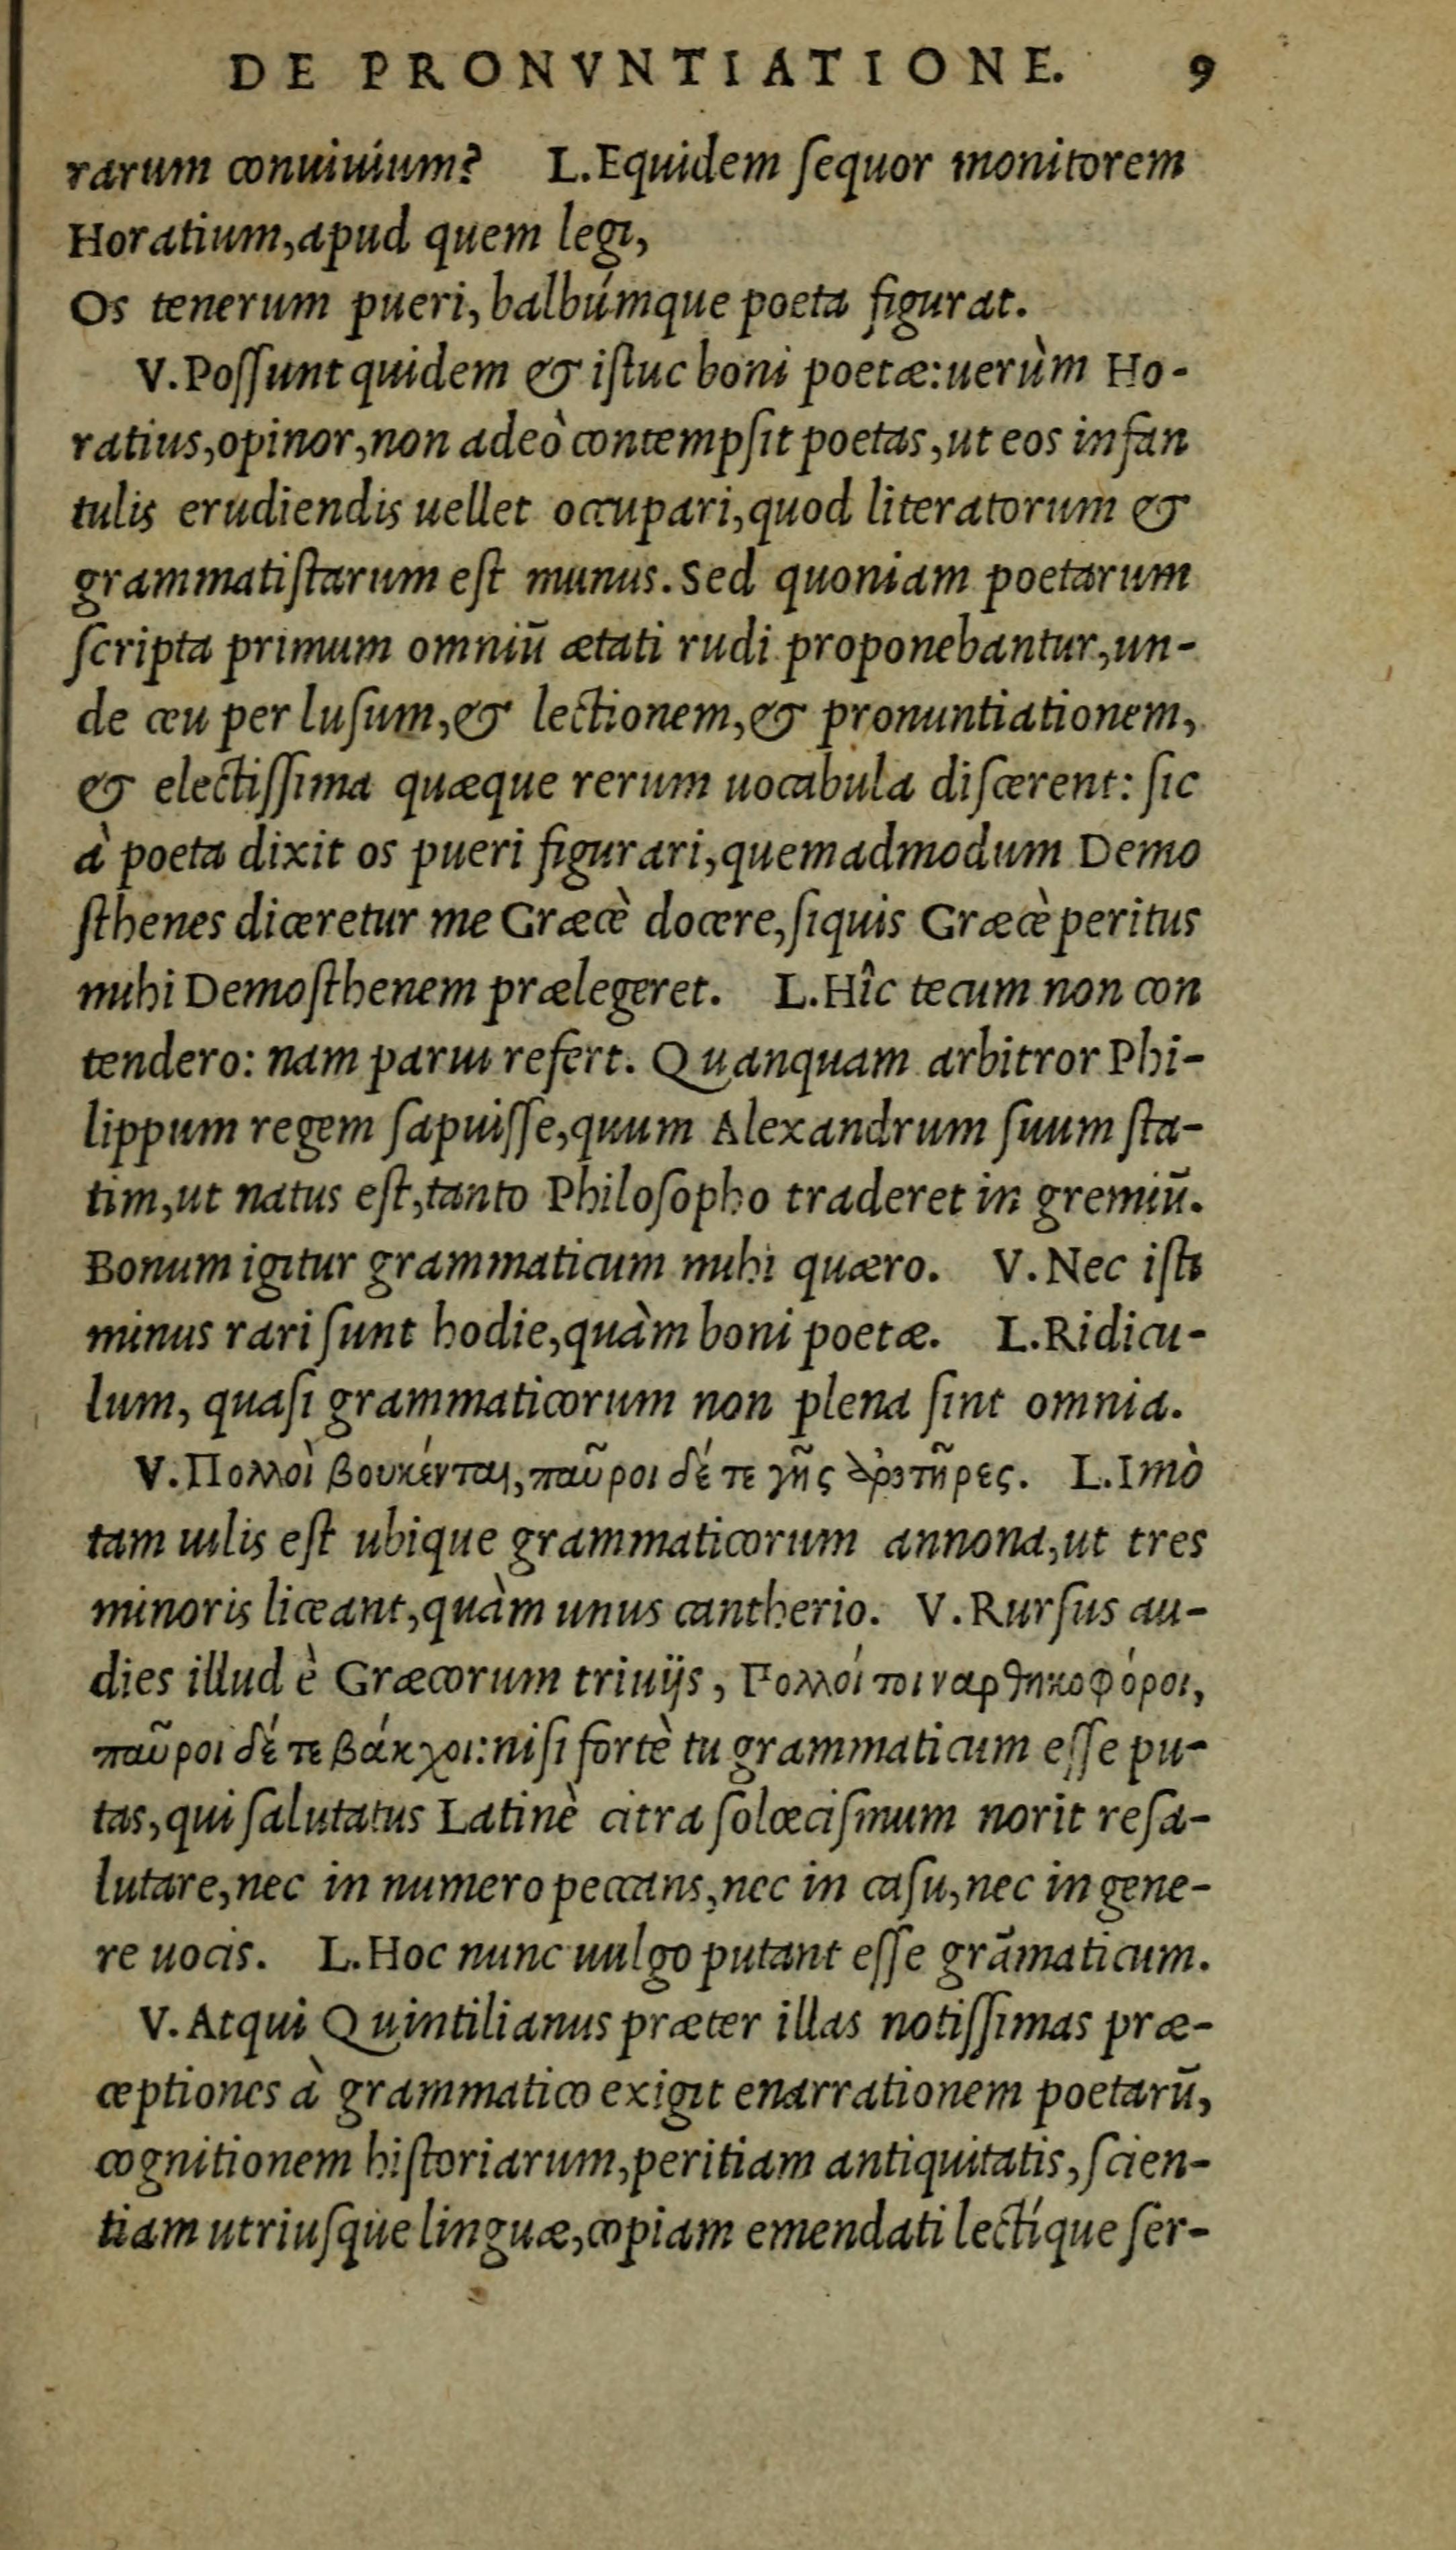 DE PRONVNTIATIONE. 9
rarum conuiuium? L.Equidem ſequor monitorem
Horatium,apud quem legi,
Os tenerum pueri, balbúmque poeta figurat.
V.Poſſunt quidem & iſtuc boni poetæ:uerùm Ho-
ratius,opinor,non adeò contempſit poetas,ut eos infan
tulis erudiendis uellet occupari,quod literatorum &
grammatiſtarum eſt munus. Sed quoniam poetarum
ſcripta primum omniū ætati rudi proponebantur,un-
de ceu per luſum,& lectionem,& pronuntiationem,
& electiſſima quæque rerum uocabula diſcerent: ſic
à poeta dixit os pueri figurari,quemadmodum Demo
ſthenes diceretur me Græcè docere,ſiquis Græcè peritus
mihi Demoſthenem prælegeret. L.Hîc tecum non con
tendero: nam parui refert. Quanquam arbitror Phi-
lippum regem ſapuiſſe,quum Alexandrum ſuum ſta-
tim,ut natus eſt,tanto Philoſopho traderet in gremiū.
Bonum igitur grammaticum mihi quæro. V.Nec iſti
minus rari ſunt hodie,quàm boni poetæ. L.Ridicu-
lum, quaſi grammaticorum non plena ſint omnia.
V.Πολλοὶ βουκένται,παῦροι δέ τε γῆς ἀροτῆρες. L.Imò
tam uilis eſt ubique grammaticorum annona,ut tres
minoris liceant,quàm unus cantherio. V.Rurſus au-
dies illud è Græcorum triuijs, Πολλοί τοι ναρθηκοφόροι,
παῦροι δέ τε βάκχοι:niſi fortè tu grammaticum eſſe pu-
tas,qui ſalutatus Latinè citra ſolœciſmum norit reſa-
lutare,nec in numero peccans,nec in caſu,nec in gene-
re uocis. L.Hoc nunc uulgo putant eſſe grāmaticum.
V.Atqui Quintilianus præter illas notiſſimas præ-
ceptiones à grammatico exigit enarrationem poetarū,
cognitionem hiſtoriarum,peritiam antiquitatis,ſcien-
tiam utriuſque linguæ,copiam emendati lectíque ſer-